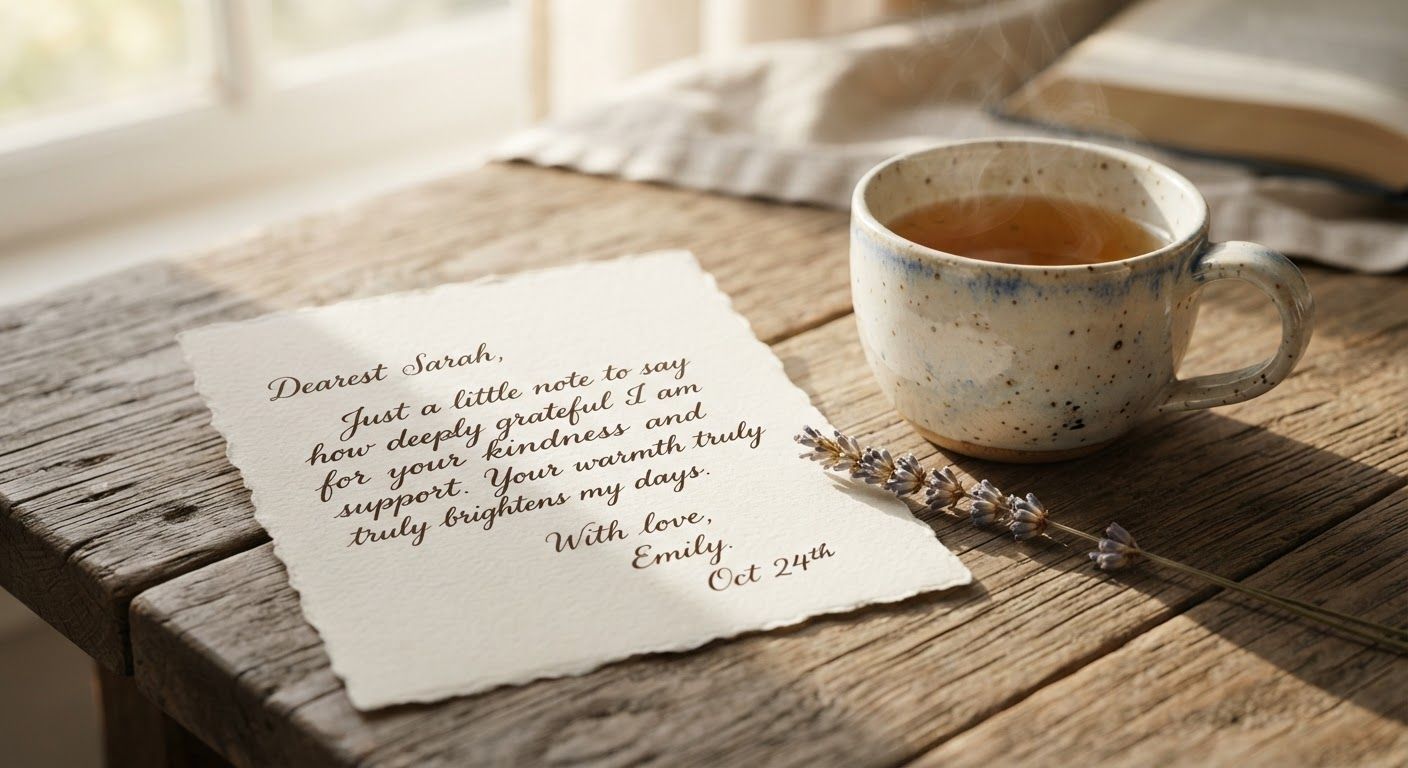 Dearest Sarah,
Just a little note to say
how deeply grateful I am
for your kindness and
support. Your warmth truly
truly brightens my days.
With love,
Emily.
Oct 24th